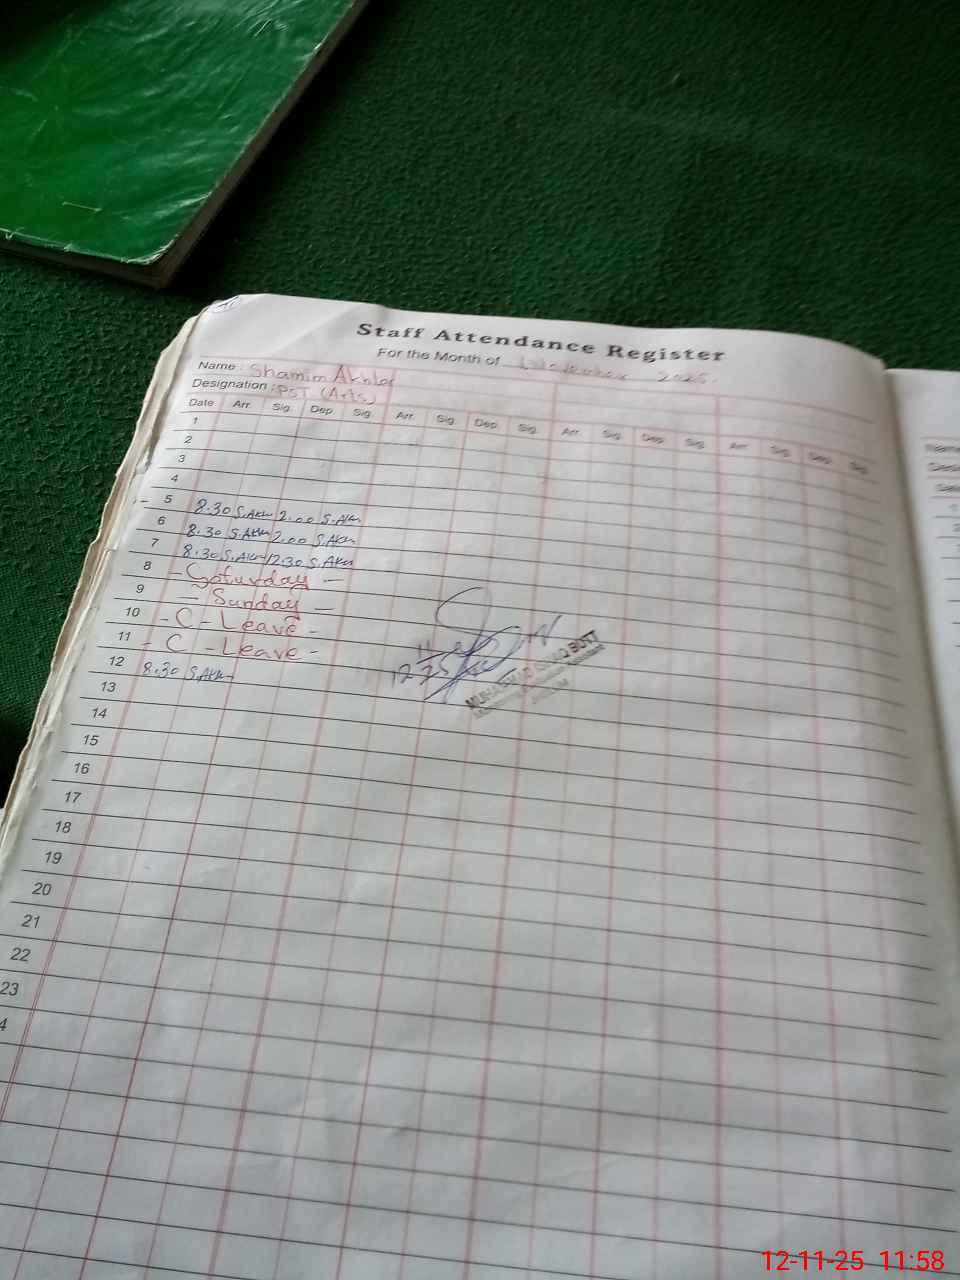 Staff Attendance Register
For the Month of November 2025.
Name : Shamim Akhter
Designation : PST (Arts)
Date Arr. Sig. Dep. Sig. Arr. Sig. Dep. Sig. Arr. Sig. Dep. Sig. Arr. Sig. Dep. Sig.
1
2
3
4
5 8.30 S.Akh 2.00 S.Akh
6 8.30 S.Akh 2.00 S.Akh
7 8.30 S.Akh 12.30 S.Akh
8 - Saturday -
9 - Sunday -
10 - C - Leave -
11 - C - Leave -
12 8.30 S.Akh
MUHAMMAD BUTT
13
14
15
16
17
18
19
20
21
22
23
4
12-11-25 11:58